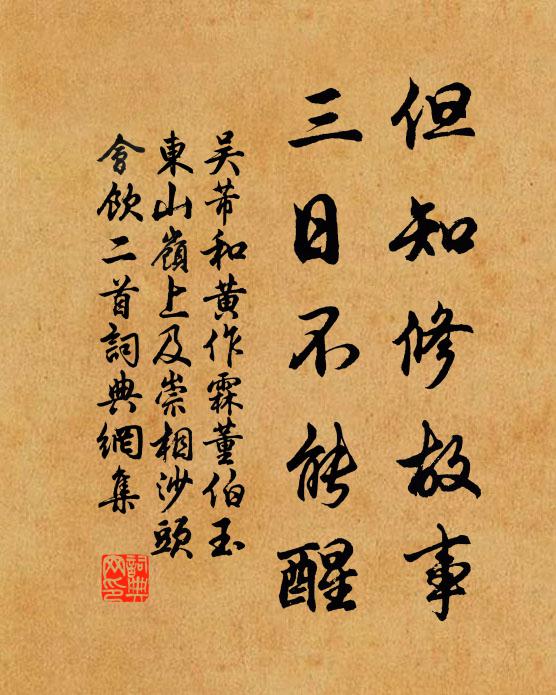 但知修故事
三日不能醒
吴芾和黄作霖董伯玉
東山嶺上及崇相沙頭
會飲二首詞典網集
詞典
网印